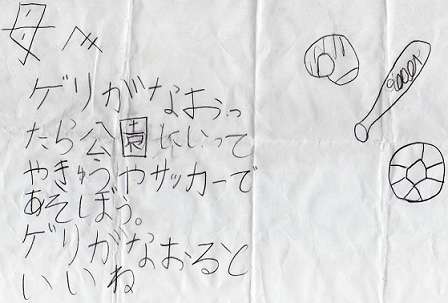 母へ
ゲリがなおぅっ
たら公園にいって
やきゅうやサッカーで
あそぼう。
ゲリがなおると
いいね